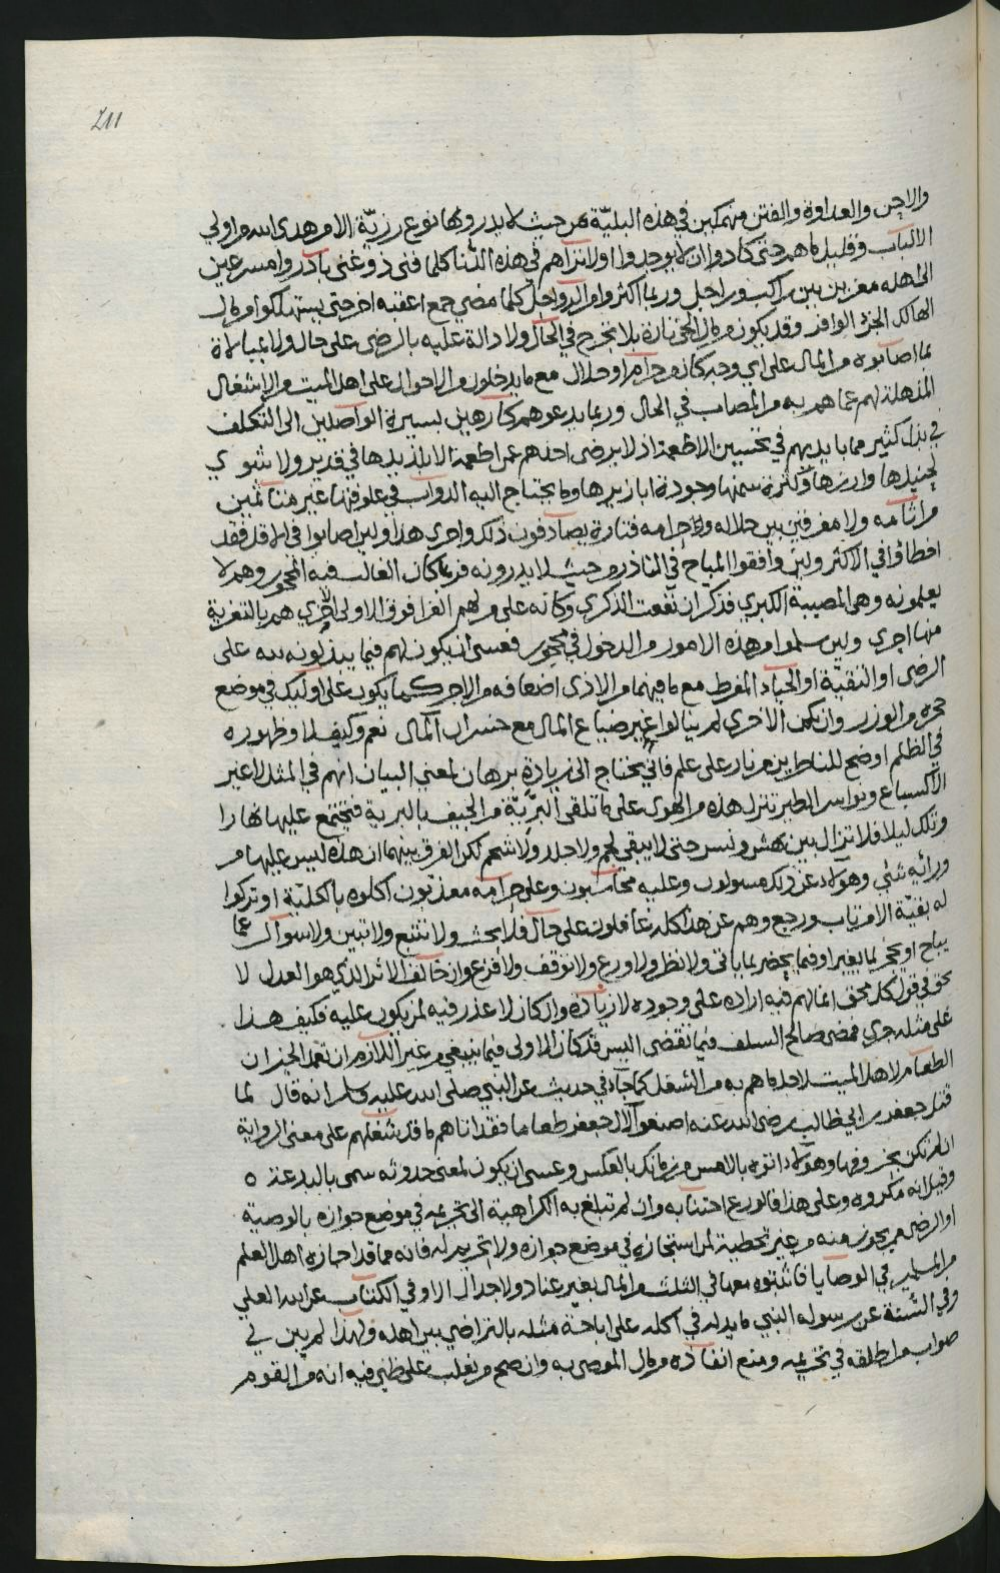 211
والاحن والعداوة والفتن منهمكين في هذه البليّة من حيث لا يدرونها نوع رزيّة الا من هدى الله من اولي
الالباب وقليل ما هم حتى كادوا ان لا يوجدوا اولا تراهم في هذه الدنيا كلما فنى ذو غنى بادروا مسرعين
الى اهله معزين بين راكب وراجل وربما اكثروا من الرواحل كلما مضى جمع اعقبه اخر حتى يستهلكوا من مال
الهالك الجزء الوافر وقد يكون من مال الجنازة بلا تحرج في الحال ولا دالة عليه بالرضى على حال ولا مبالاة
بما اصابوه من المال على اي وجه كان من حرام او حلال مع ما يدخلون من الاحوال على اهل الميت من الاشغال
المذهلة لهم عما هم به من المصاب في الحال وربما يدعوهم كارهين بسيرة الواصلين الى التكلف
في بذل كثير مما بايديهم في تحسين الاطعمة اذ لا يرضى احدهم من اطعمة الا بلذيذها في قدير ولا شوي
لحنيذها وارزها وكثرة سمنها وجودة ابازيرها وما يحتاج اليه الدواب في علوفها غير متأثمين
من اثامه ولا مفرقين بين حلاله وحرامه فتارة يصادفون ذلك واخرى هذا ولين اصابوا في الاقل فقد
اخطاؤا في الاكثر ولين وافقوا المباح في النادر من حيث لا يدرونه فربما كان الغالب فيه المحجور وهم لا
يعلمونه وهي المصيبة الكبرى فذكر ان نفعت الذكرى وكانه على من لهم الغرا فوق الاولى اخرى هم بالتعزية
منها احرى ولين سلموا من هذه الامور من الدخول في محجور فعسى ان يكون لهم فيما يبذلونه لله على
الرضى او التقيّة او الحياء المفرط مع ما فيهما من الاذى اضعافه من الاجر كما يكون على اوليك في موضع
حجره من الوزر وان تكن الاخرى لم ينالوا غير ضياع المال مع خسران المآل نعم وكيف لا وظهوره
في الظلم اوضح للناظرين من نار على علم فاني يحتاج الى زيادة برهان لمعنى البيان انهم في المثل لا غير
الا كسباع ونواسر الطير تنزل هذه من الهوى على ما تلقى البريّة من الجيف بالبرية فتجتمع عليها نهارا
وتلك ليلا فلا تزال بين نهش ونسر حتى لا يبقى لحم ولا جلد ولا شحم لكن الفرق بينهما ان هذه ليس عليها من
ورائه شئي وهؤلاء عن ذلك مسولون وعليه محاسبون وعلى حرامه معذبون اكلوه بالكليّة او تركوا
له بقيّة الا من تاب ورجع وهم عن هذا كله غافلون على حال فلا بحث ولا تتبع ولا تبين ولا سوال عما
يباح او يحجر لما يغيب او فيما يحضر لما ياتى ولا نظر ولا ورع ولا توقف ولا فزع وان خالف الاثر الذي هو العدل لا
محق في قول كل محق انما لهم فيه اراده على وجوده لا زيادة وان كان لا عذر فيه لمن يكون عليه فكيف هذا
على مثله جرى فمضى صالح السلف فيما نقضى اليس قد كان الاولى فيما ينبغي من غير اللازم ان تعمد الجيران
الطعام لاهل الميت لاجل ما هم به من الشغل كما جآء في حديث عن النبي صلى الله عليه وسلم انه قال لما
قتل جعفر بن ابي طالب رضى الله عنه اصنعوا لال جعفر طعاما فقد اتاهم ما قد شغلهم على معنى الرواية
ان لم تكن بحروفها وهؤلاء اتوه بالامس من ذلك بالعكس وعسى ان يكون لمعنى حدوثه سمى بالبدعة
وقيل انه مكروه وعلى هذا فالورع اجتنابه وان لم تبلغ به الكراهية الى تحريمه في موضع جوازه بالوصية
او الرضى ممن يجوز منه من غير تخطية لمن استجازه في موضع جوازه ولا تحريم له فانه مما قد اجازه اهل العلم
من المسلمين في الوصايا فاثبتوه معها في الثلث من المال بغير عناد ولا جدال الا وفي الكتاب عن الله العلي
وفي السنّة عن رسوله النبي ما يدل في اكله على اباحة مثله بالتراضي بين اهله ولهذا لم يبن لي
صواب من اطلقه في تحريمه ومنع انفاذه من مال الموصى به وان صح ويغلب على ظني فيه انه من القوم